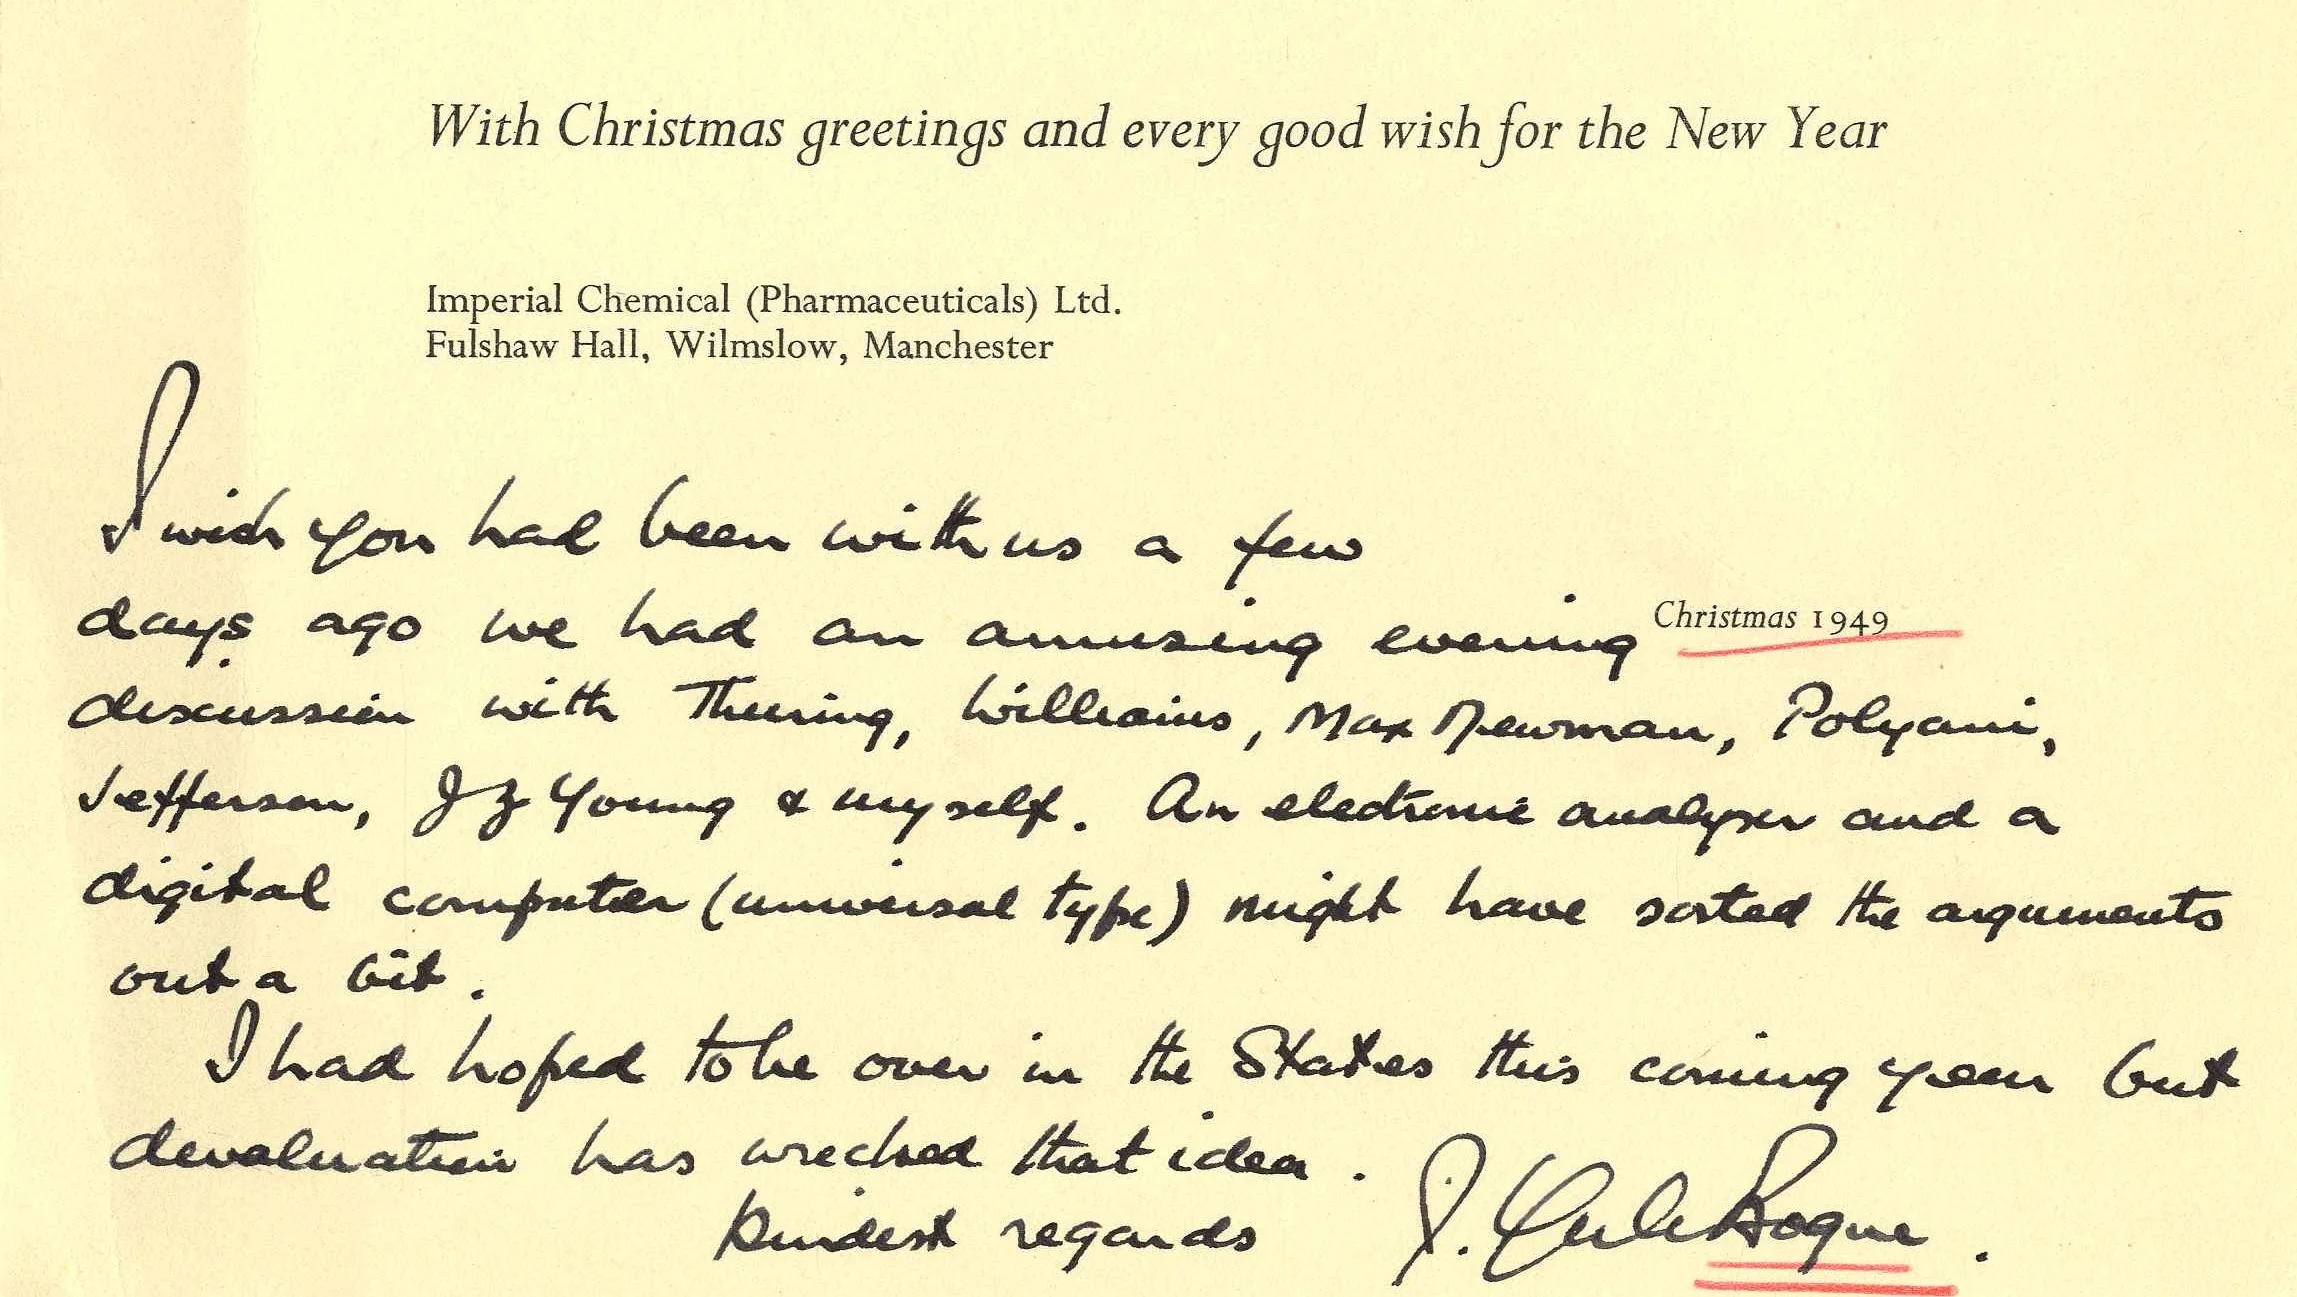 With Christmas greetings and every good wish for the New Year
Imperial Chemical (Pharmaceuticals) Ltd.
Fulshaw Hall, Wilmslow, Manchester
I wish you had been with us a few
days ago we had an amusing evening
Christmas 1949
discussion with Thuring, Williams, Max Newman, Polyani,
Jefferson, J Z Young & myself. An electronic analyser and a
digital computer (universal type) might have sorted the arguments
out a bit.
I had hoped to be over in the States this coming year but
devaluation has wrecked that idea.
Kindest regards